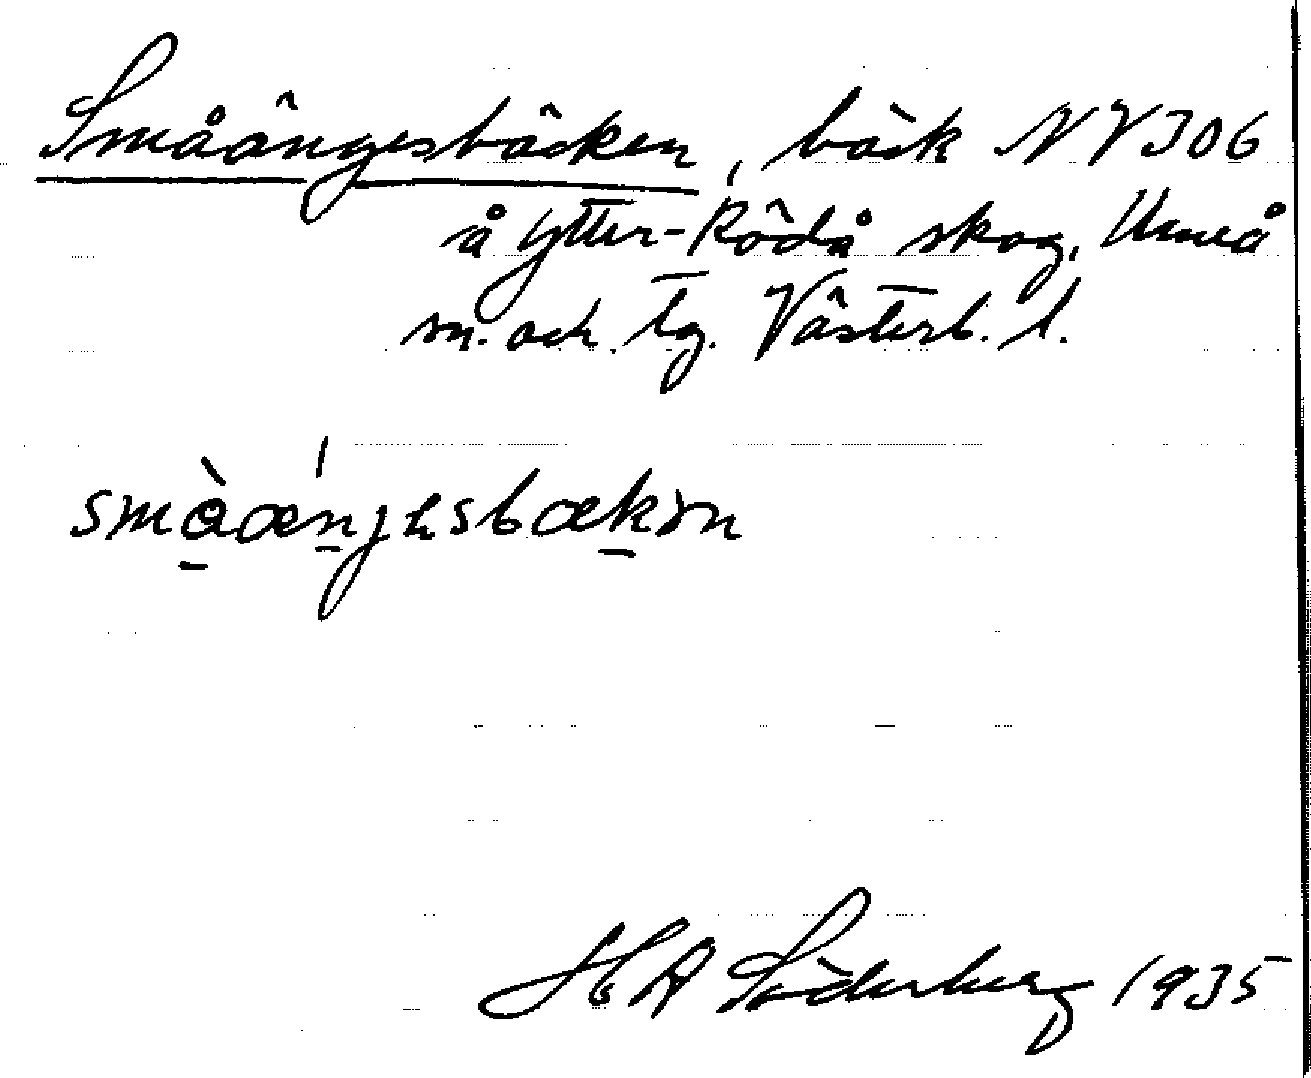 Småängesbäcken, bäck NV306
å Ytter-Rödå skog, Umeå
sn. och tg. Västerb. l.
HA Söderberg 1935